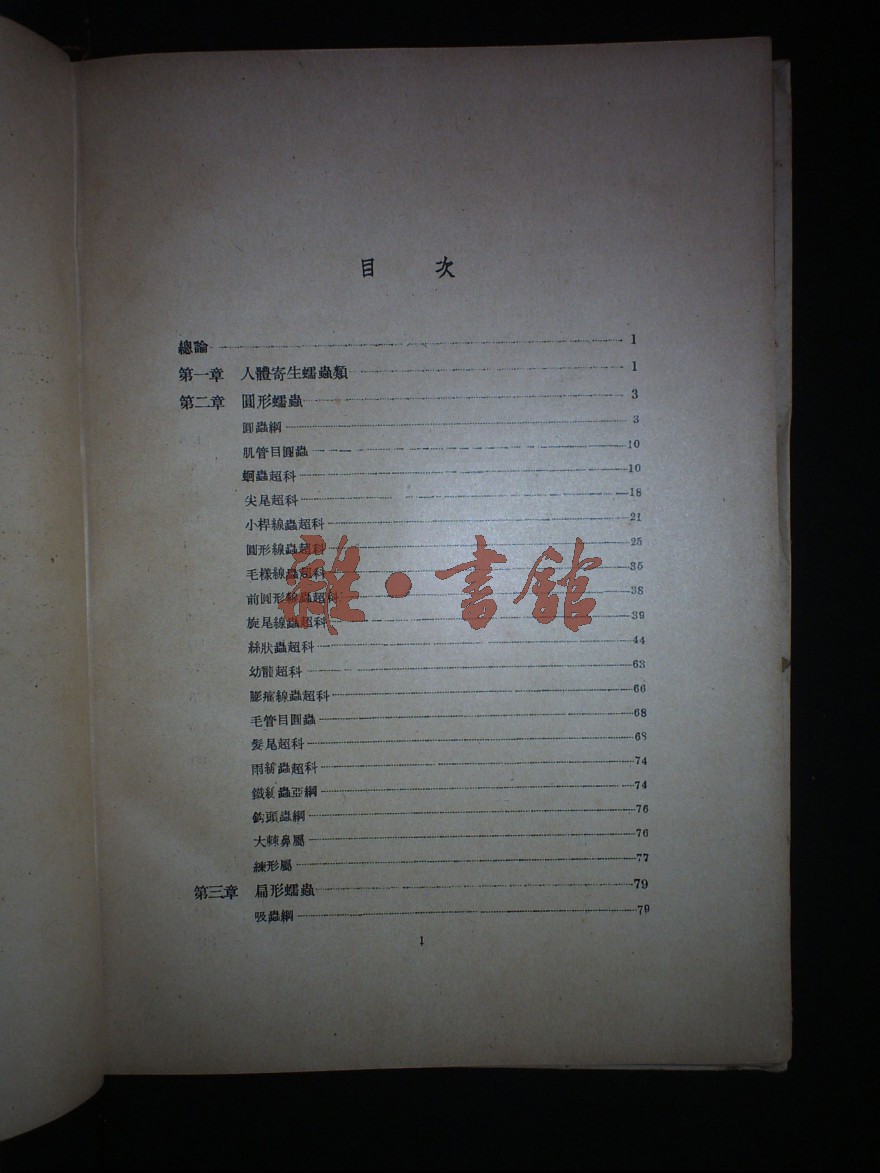 目 次
總論 1
第一章 人體寄生蠕蟲類 1
第二章 圓形蠕蟲 3
圓蟲綱 3
肌管目圓蟲 10
蛔蟲超科 10
尖尾超科 18
小桿線蟲超科 21
圓形線蟲超科 25
毛樣線蟲超科 35
前圓形線蟲超科 38
旋尾線蟲超科 39
絲狀蟲超科 44
幼龍超科 63
膨瘤線蟲超科 66
毛管目圓蟲 68
髮尾超科 68
雨線蟲超科 74
鐵線蟲亞綱 74
鈎頭蟲綱 76
大棘鼻屬 76
練形屬 77
第三章 扁形蠕蟲 79
吸蟲綱 79
1
雜·書館